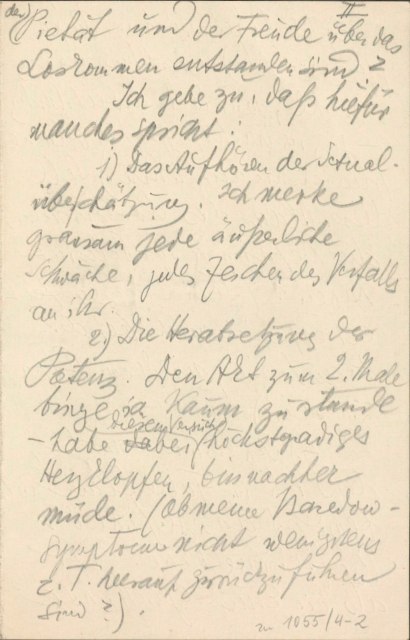 II
der) Pietät und der Freude über das
Loskommen entstanden sind?
Ich gebe zu, daß hiefür
manches spricht:
1) Das Aufhören der Sexual-
überschätzung. Ich merke
grausam jede äußerliche
Schwäche, jedes Zeichen des Verfalls
an ihr.
2.) Die Herabsetzung der
Potenz. Den Akt zum 2. Male
bringe ich kaum zu stande
diesem Versuch
– habe dabei höchstgradiges
Herzklopfen, bin nachher
müde. (Ob meine Basedow-
symptome nicht wenigstens
z. T. hierauf zurückzuführen
sind?).
zu 1055/4-2